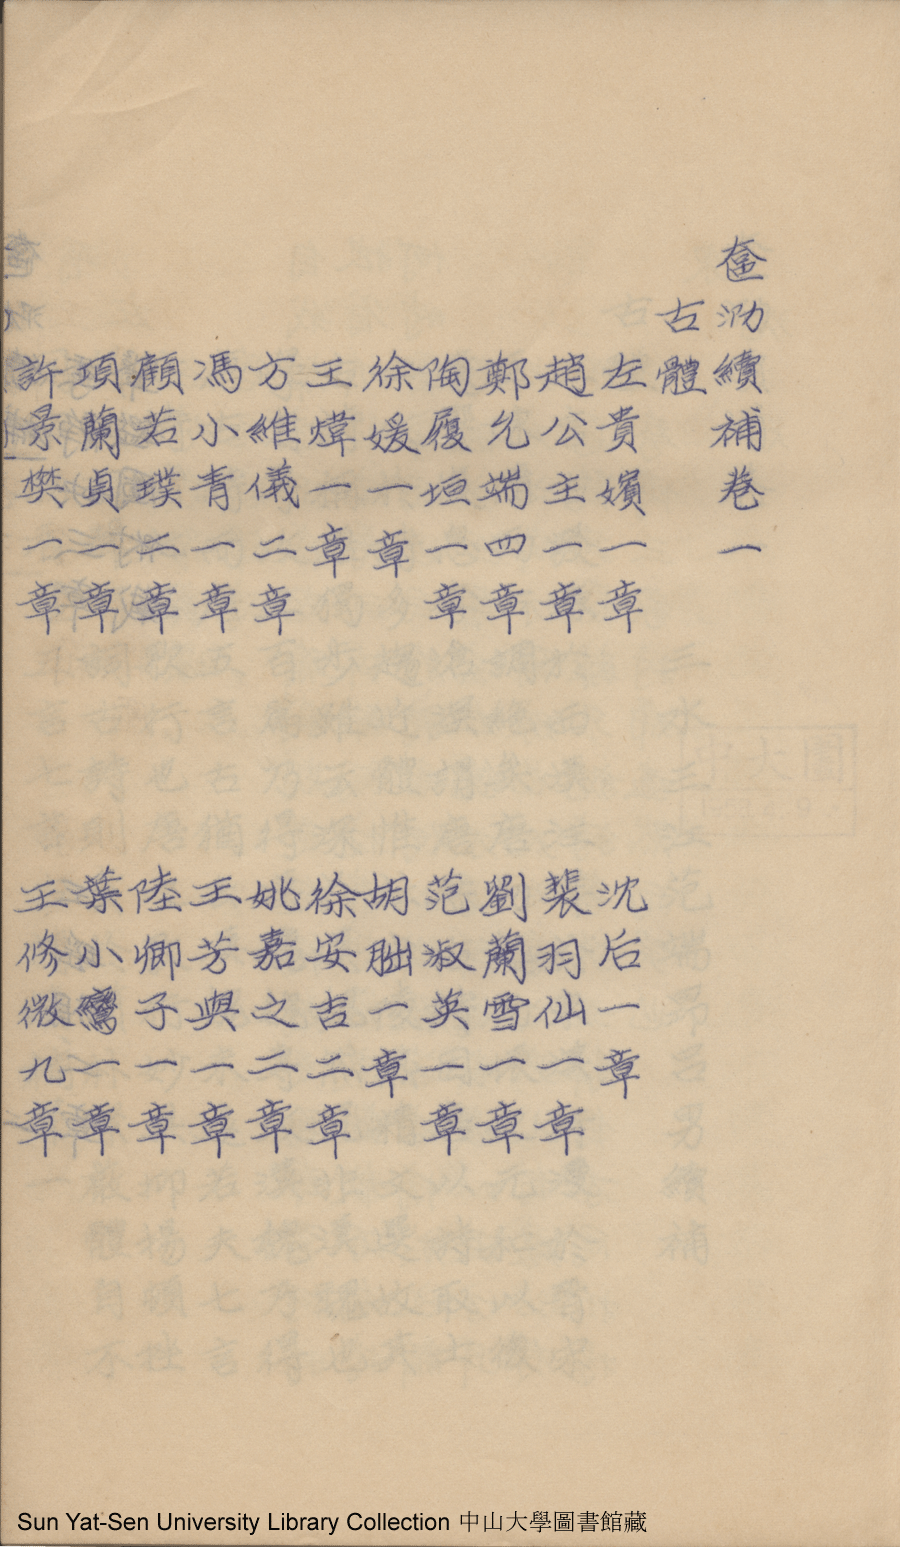 奩泐續補卷一
古體
左貴嬪一章
沈后一章
趙公主一章
裴羽仙一章
鄭允端四章
劉蘭雪一章
陶履垣一章
范淑英一章
徐媛一章
胡朏一章
王煒一章
徐安吉二章
方維儀二章
姚嘉之二章
馮小青一章
王芳與一章
顧若璞二章
陸卿子一章
項蘭貞一章
葉小鸞一章
許景樊一章
王修微九章
中大圖
Sun Yat-Sen University Library Collection 中山大學圖書館藏